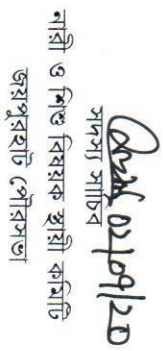 ০২/০৭/২০
সদস্য সচিব
নারী ও শিশু বিষয়ক স্থায়ী কমিটি
জয়পুরহাট পৌরসভা